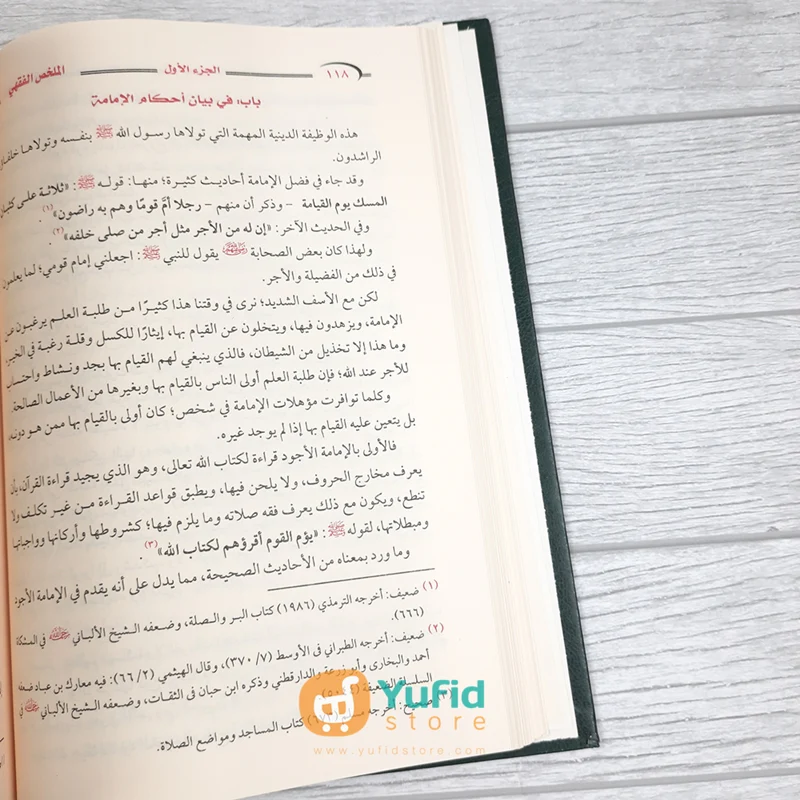 ١١٨ الجزء الأول الملخص الفقهي
باب: في بيان أحكام الإمامة
هذه الوظيفة الدينية المهمة التي تولاها رسول الله ﷺ بنفسه وتولاها خلفاؤ
الراشدون.
وقد جاء في فضل الإمامة أحاديث كثيرة؛ منها: قوله ﷺ: «ثلاثة على كثبان
المسك يوم القيامة - وذكر أن منهم - رجلا أمَّ قومًا وهم به راضون»(١).
وفي الحديث الآخر: «إن له من الأجر مثل أجر من صلى خلفه»(٢).
ولهذا كان بعض الصحابة يقول للنبي ﷺ: اجعلني إمام قومي؛ لما يعلمون
في ذلك من الفضيلة والأجر.
لكن مع الأسف الشديد؛ نرى في وقتنا هذا كثيرًا من طلبة العلم يرغبون عن
الإمامة، ويزهدون فيها، ويتخلون عن القيام بها، إيثارًا للكسل وقلة رغبة في الخير،
وما هذا إلا تخذيل من الشيطان، فالذي ينبغي لهم القيام بها بجد ونشاط واحتساب
للأجر عند الله؛ فإن طلبة العلم أولى الناس بالقيام بها وبغيرها من الأعمال الصالحة.
وكلما توافرت مؤهلات الإمامة في شخص؛ كان أولى بالقيام بها ممن هو دونه،
بل يتعين عليه القيام بها إذا لم يوجد غيره.
فالأولى بالإمامة الأجود قراءة لكتاب الله تعالى، وهو الذي يجيد قراءة القرآن، بأن
يعرف مخارج الحروف، ولا يلحن فيها، ويطبق قواعد القراءة من غير تكلف ولا
تنطع، ويكون مع ذلك يعرف فقه صلاته وما يلزم فيها؛ كشروطها وأركانها وواجباتها
ومبطلاتها، لقوله ﷺ: «يؤم القوم أقرؤهم لكتاب الله»(٣).
وما ورد بمعناه من الأحاديث الصحيحة، مما يدل على أنه يقدم في الإمامة الأجود
(١) ضعيف: أخرجه الترمذي (١٩٨٦) كتاب البر والصلة، وضعفه الشيخ الألباني في المشكاة
(٦٦٦).
(٢) ضعيف: أخرجه الطبراني في الأوسط (٧/ ٣٧٠)، وقال الهيثمي (٢/ ٦٦): فيه معارك بن عباد ضعفه
أحمد والبخاري وأبو زرعة والدارقطني وذكره ابن حبان في الثقات، وضعفه الشيخ الألباني في
السلسلة الضعيفة
(٣) صحيح: أخرجه مسلم (٦٧٣) كتاب المساجد ومواضع الصلاة.
Yufid
store
www.yufidstore.com